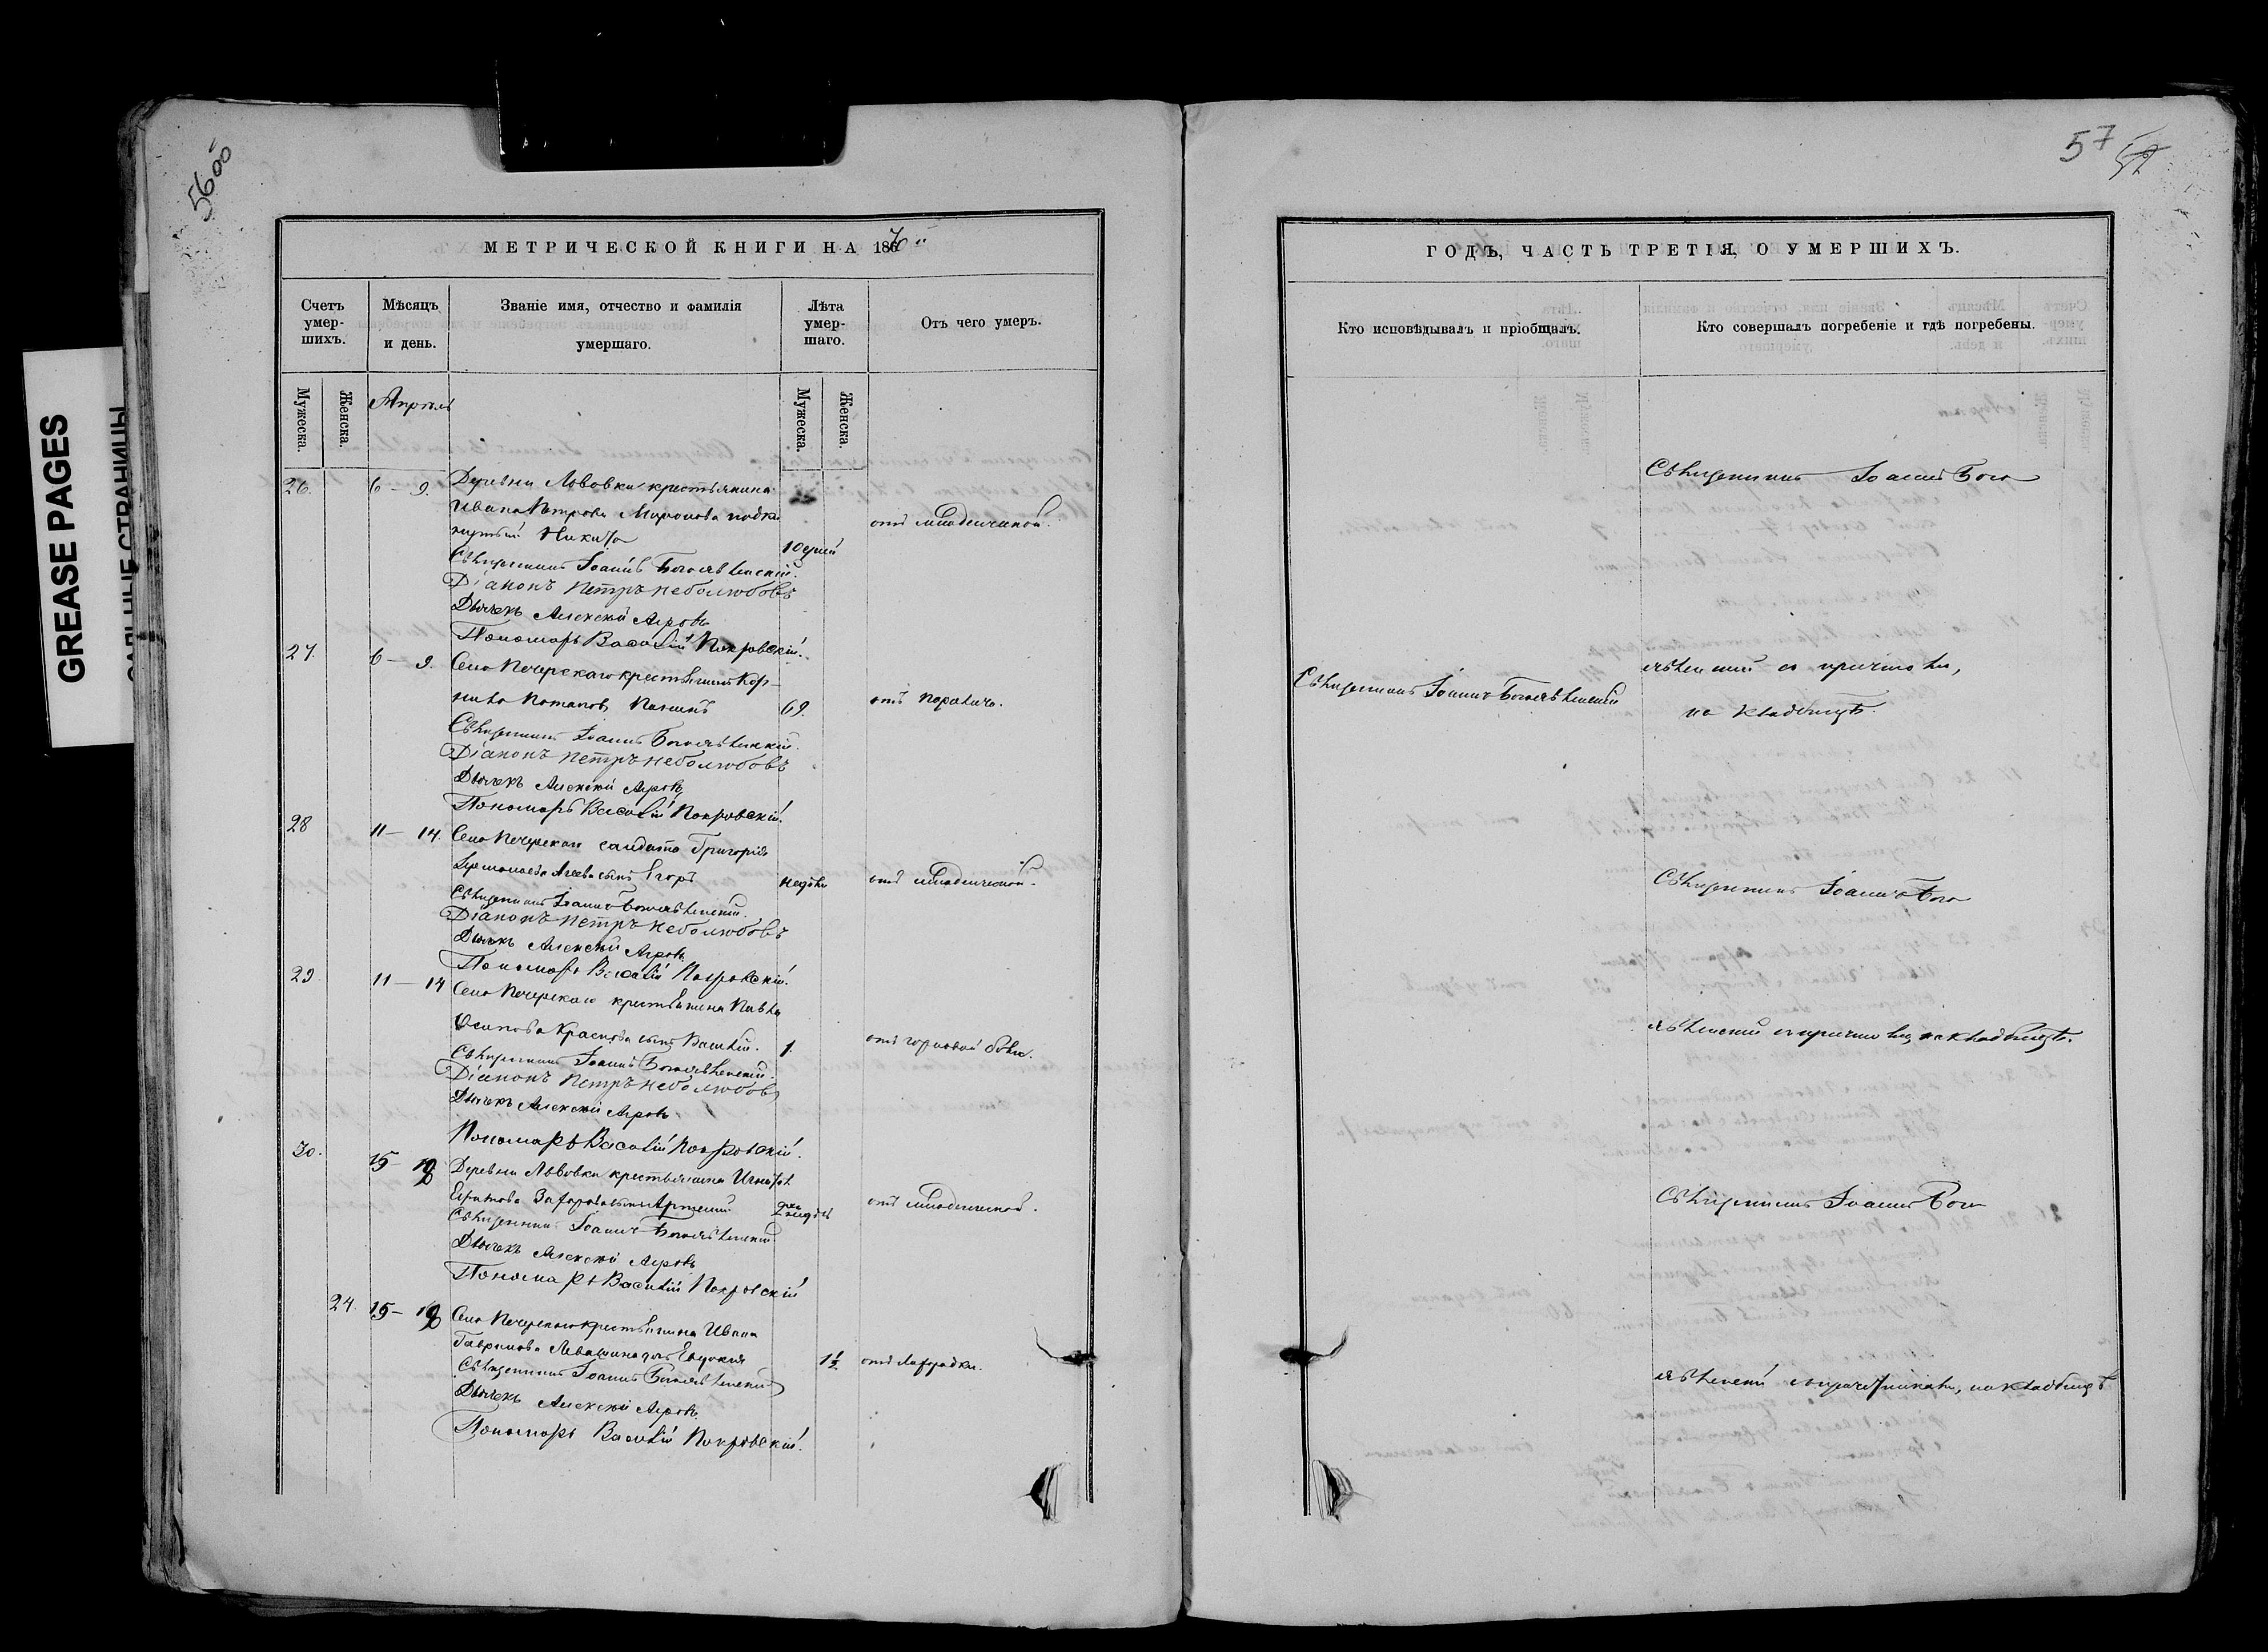 GREASE PAGES
САЛЬНЫЕ СТРАНИЦЫ
57
МЕТРИЧЕСКОЙ КНИГИ НА 1870
Счетъ умер-
шихъ.
Мѣсяцъ
и день.
Званіе имя, отчество и фамилія
умершаго.
Лѣта
умер-
шаго.
Отъ чего умеръ.
Мужеска.
Женска.
Апрѣль
Мужеска.
Женска.
26. 6 – 9. Деревни Львовки крестьянина
Ивана Петрова Миронова подки
нутый Никита 10 дней отъ младенческой.
Священникъ Іоаннъ Богоявленскій.
Діаконъ Петръ Неболюбовъ
Дьячекъ Алексѣй Агровъ
Пономарь Василій Покровскій.
27. 6 – 9. Села Печерскаго крестьянинъ Кор-
нило Потаповъ 69. отъ паралича.
Священникъ Іоаннъ Богоявленскій.
Діаконъ Петръ Неболюбовъ
Дьячекъ Алексѣй Агровъ
Пономарь Василій Покровскій.
28 11 – 14. Села Печерскаго солдата Григорія
сынъ Егоръ недѣли отъ младенческой.
Священникъ Іоаннъ Богоявленскій.
Діаконъ Петръ Неболюбовъ
Дьячекъ Алексѣй Агровъ
Пономарь Василій Покровскій.
29. 11 – 14 Села Печерскаго крестьянина Павла
Осипова Краснова сынъ Василій. 1. отъ горловой боли.
Священникъ Іоаннъ Богоявленскій.
Діаконъ Петръ Неболюбовъ
Дьячекъ Алексѣй Агровъ
Пономарь Василій Покровскій.
30. 15 – 18 Деревни Львовки крестьянина Игнатія
сынъ Артемій 2 недѣль отъ младенческой.
Священникъ Іоаннъ Богоявленскій.
Дьячекъ Алексѣй Агровъ
Пономарь Василій Покровскій
24. 15 – 18 Села Печерскаго крестьянина Ивана
Гаврилова Левашина дочь Евдокія 1½ отъ лихорадки.
Священникъ Іоаннъ Богоявленскій
Дьячекъ Алексѣй Агровъ
Пономарь Василій Покровскій.
ГОДЪ, ЧАСТЬ ТРЕТІЯ, О УМЕРШИХЪ.
Кто исповѣдывалъ и пріобщалъ.
Кто совершалъ погребеніе и гдѣ погребены.
Священникъ Іоаннъ Бого
Священникъ Іоаннъ Богоявленскій
явленскій съ причтомъ,
на кладбищѣ.
Священникъ Іоаннъ Бого
явленскій съ причтомъ, на кладбищѣ.
Священникъ Іоаннъ Бого
явленскій съ причетниками, на кладбищѣ